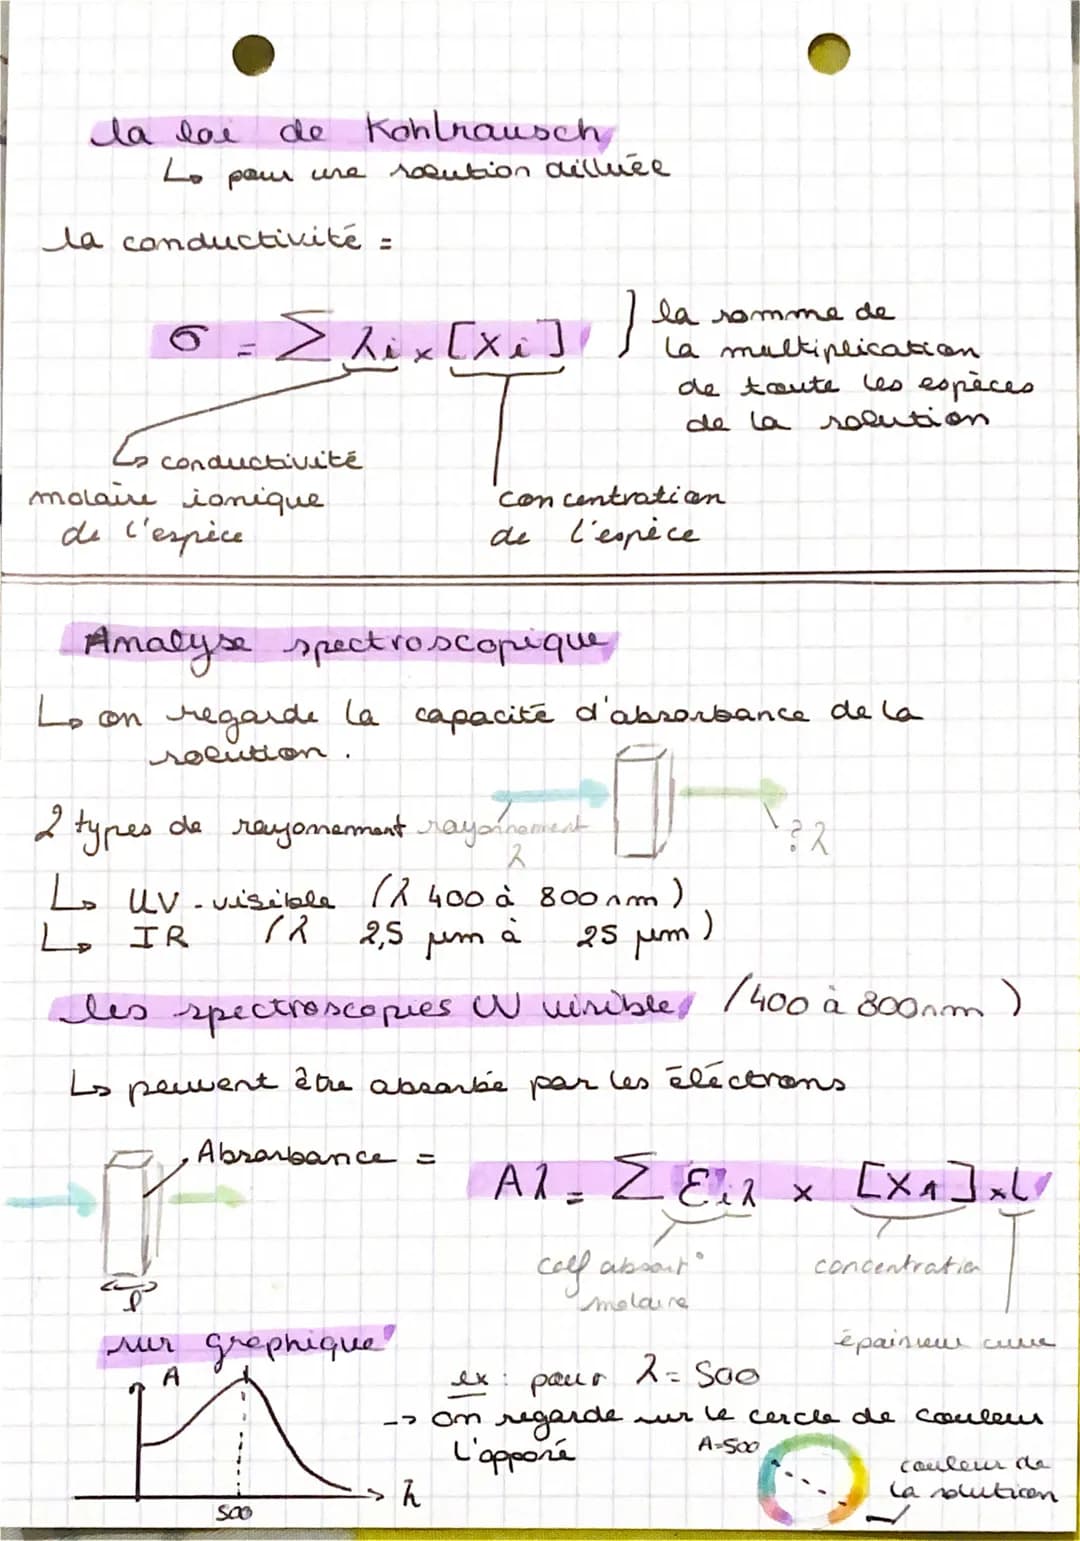 la loi de Kohlrausch
↳ pour une solution dilluée
la conductivité =
σ = ∑ λi × [Xi]
la somme de
la multiplication
de toute les espèces
de la solution
↳ conductivité
molaire ionique
de l'espèce
concentration
de l'espèce
Analyse spectroscopique
↳ on regarde la capacité d'absorbance de la
solution.
2 types de rayonnement
rayonnement
λ
? λ
↳ UV-visible (λ 400 à 800 nm)
↳ IR (λ 2,5 µm à 25 µm)
les spectroscopies UV visible (400 à 800nm)
↳ peuvent être absorbée par les éléctrons
Absorbance =
Aλ = ∑ Ɛiλ × [X1] × l
coef absort°
molaire
concentration
épaisseur cuve
l
sur graphique
A
500
λ
ex : pour λ = 500
-> on regarde sur le cercle de couleur
l'opposé
A=500
couleur de
la solution